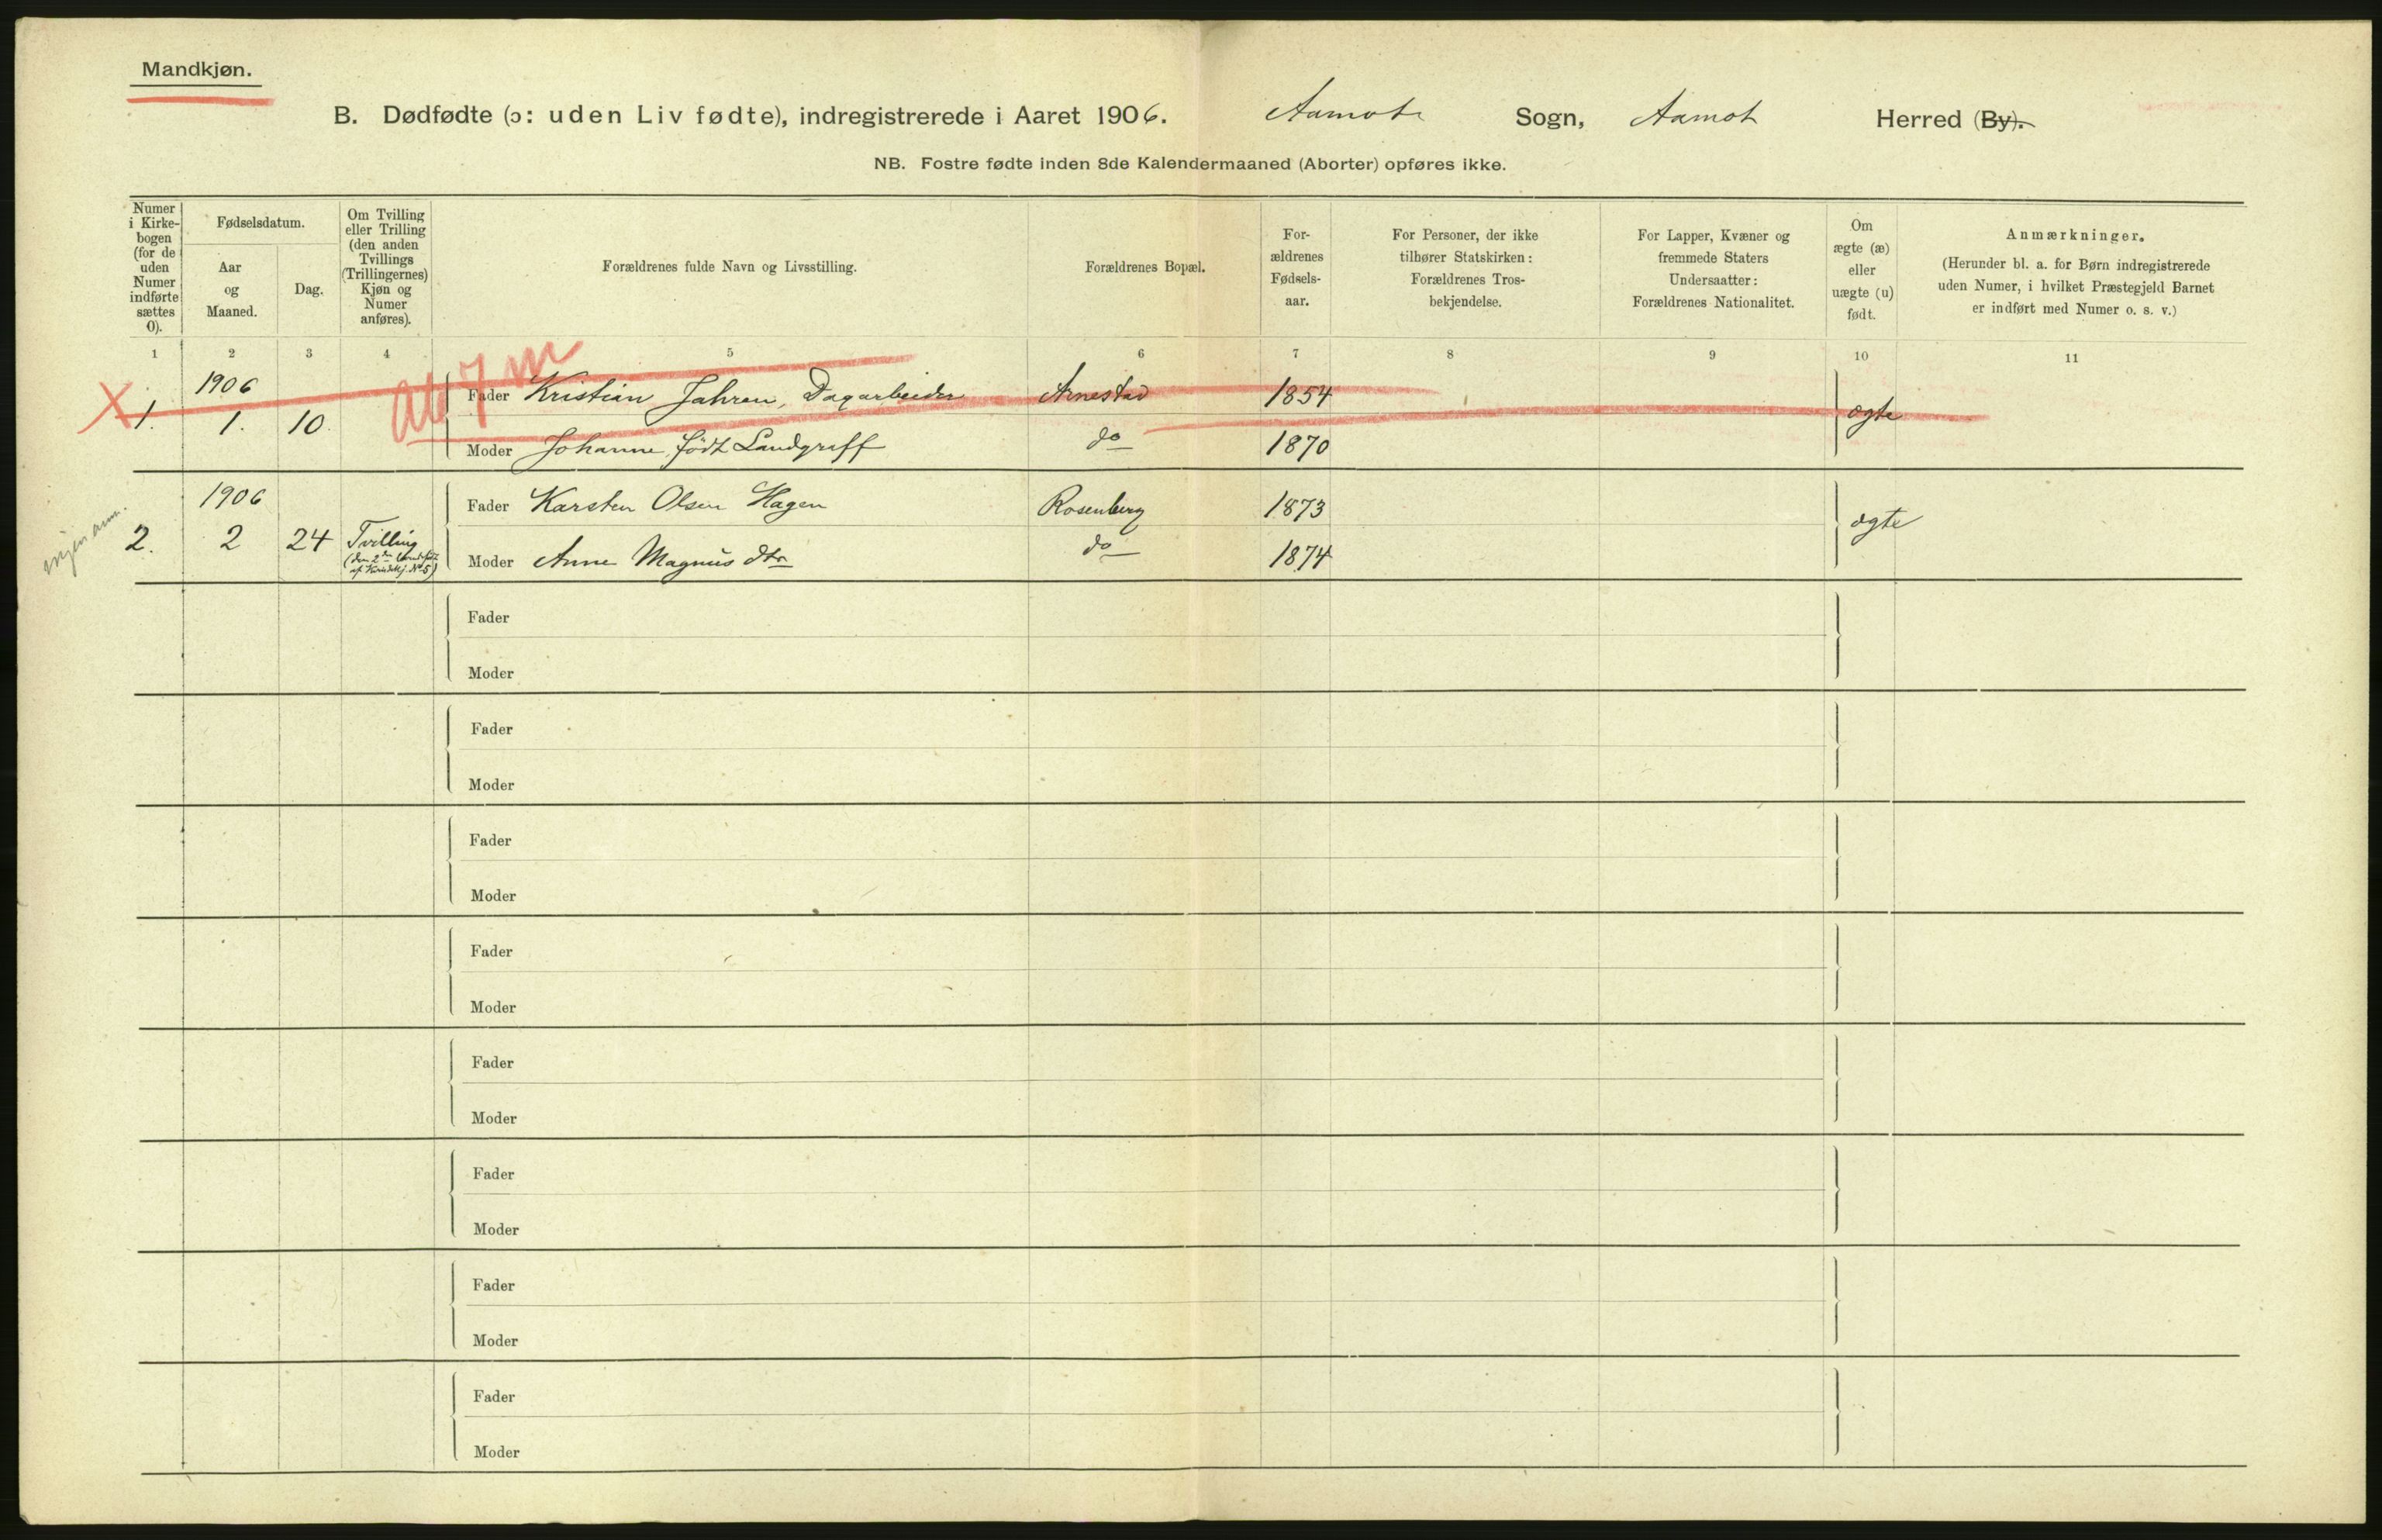 Mandkjøn.
B. Dødfødte (ɔ: uden Liv fødte), indregistrerede i Aaret 1906. Aamots Sogn, Aamot Herred (By).
NB. Fostre fødte inden 8de Kalendermaaned (Aborter) opføres ikke.
Numer i Kirke-
bogen
(for de
uden
Numer
indførte
sættes
0).
Fødselsdatum.
Aar
og
Maaned.
Dag.
Om Tvilling
eller Trilling
(den anden
Tvillings
(Trillingernes)
Kjøn og
Numer
anføres).
Forældrenes fulde Navn og Livsstilling.
Forældrenes Bopæl.
For-
ældrenes
Fødsels-
aar.
For Personer, der ikke
tilhører Statskirken:
Forældrenes Tros-
bekjendelse.
For Lapper, Kvæner og
fremmede Staters
Undersaatter:
Forældrenes Nationalitet.
Om
ægte (æ)
eller
uægte (u)
født.
Anmærkninger.
(Herunder bl. a. for Børn indregistrerede
uden Numer, i hvilket Præstegjeld Barnet
er indført med Numer o. s. v.)
1 2 3 4 5 6 7 8 9 10 11
X 1. 1906 1. 10. Fader Kristian Jahren, Dagarbeider Arnestad 1854 ægte
Moder Johanne, født Landgraff do 1870
2. 1906 2 24 Tvilling Fader Karsten Olsen Hagen Rosenberg 1873 ægte
Moder Anne Magnus dtr do 1874
Fader
Moder
Fader
Moder
Fader
Moder
Fader
Moder
Fader
Moder
Fader
Moder
Fader
Moder
Fader
Moder